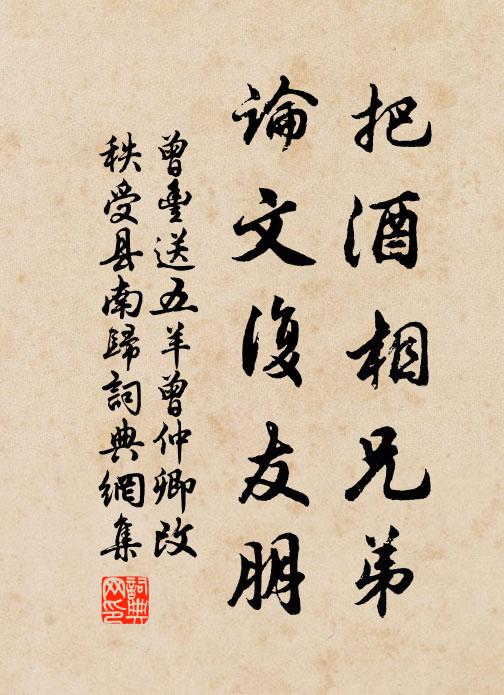 把酒相兄弟
論文復友朋
曾豐送五羊曾仲卿改
秩受县南歸詞典網集
詞典網印